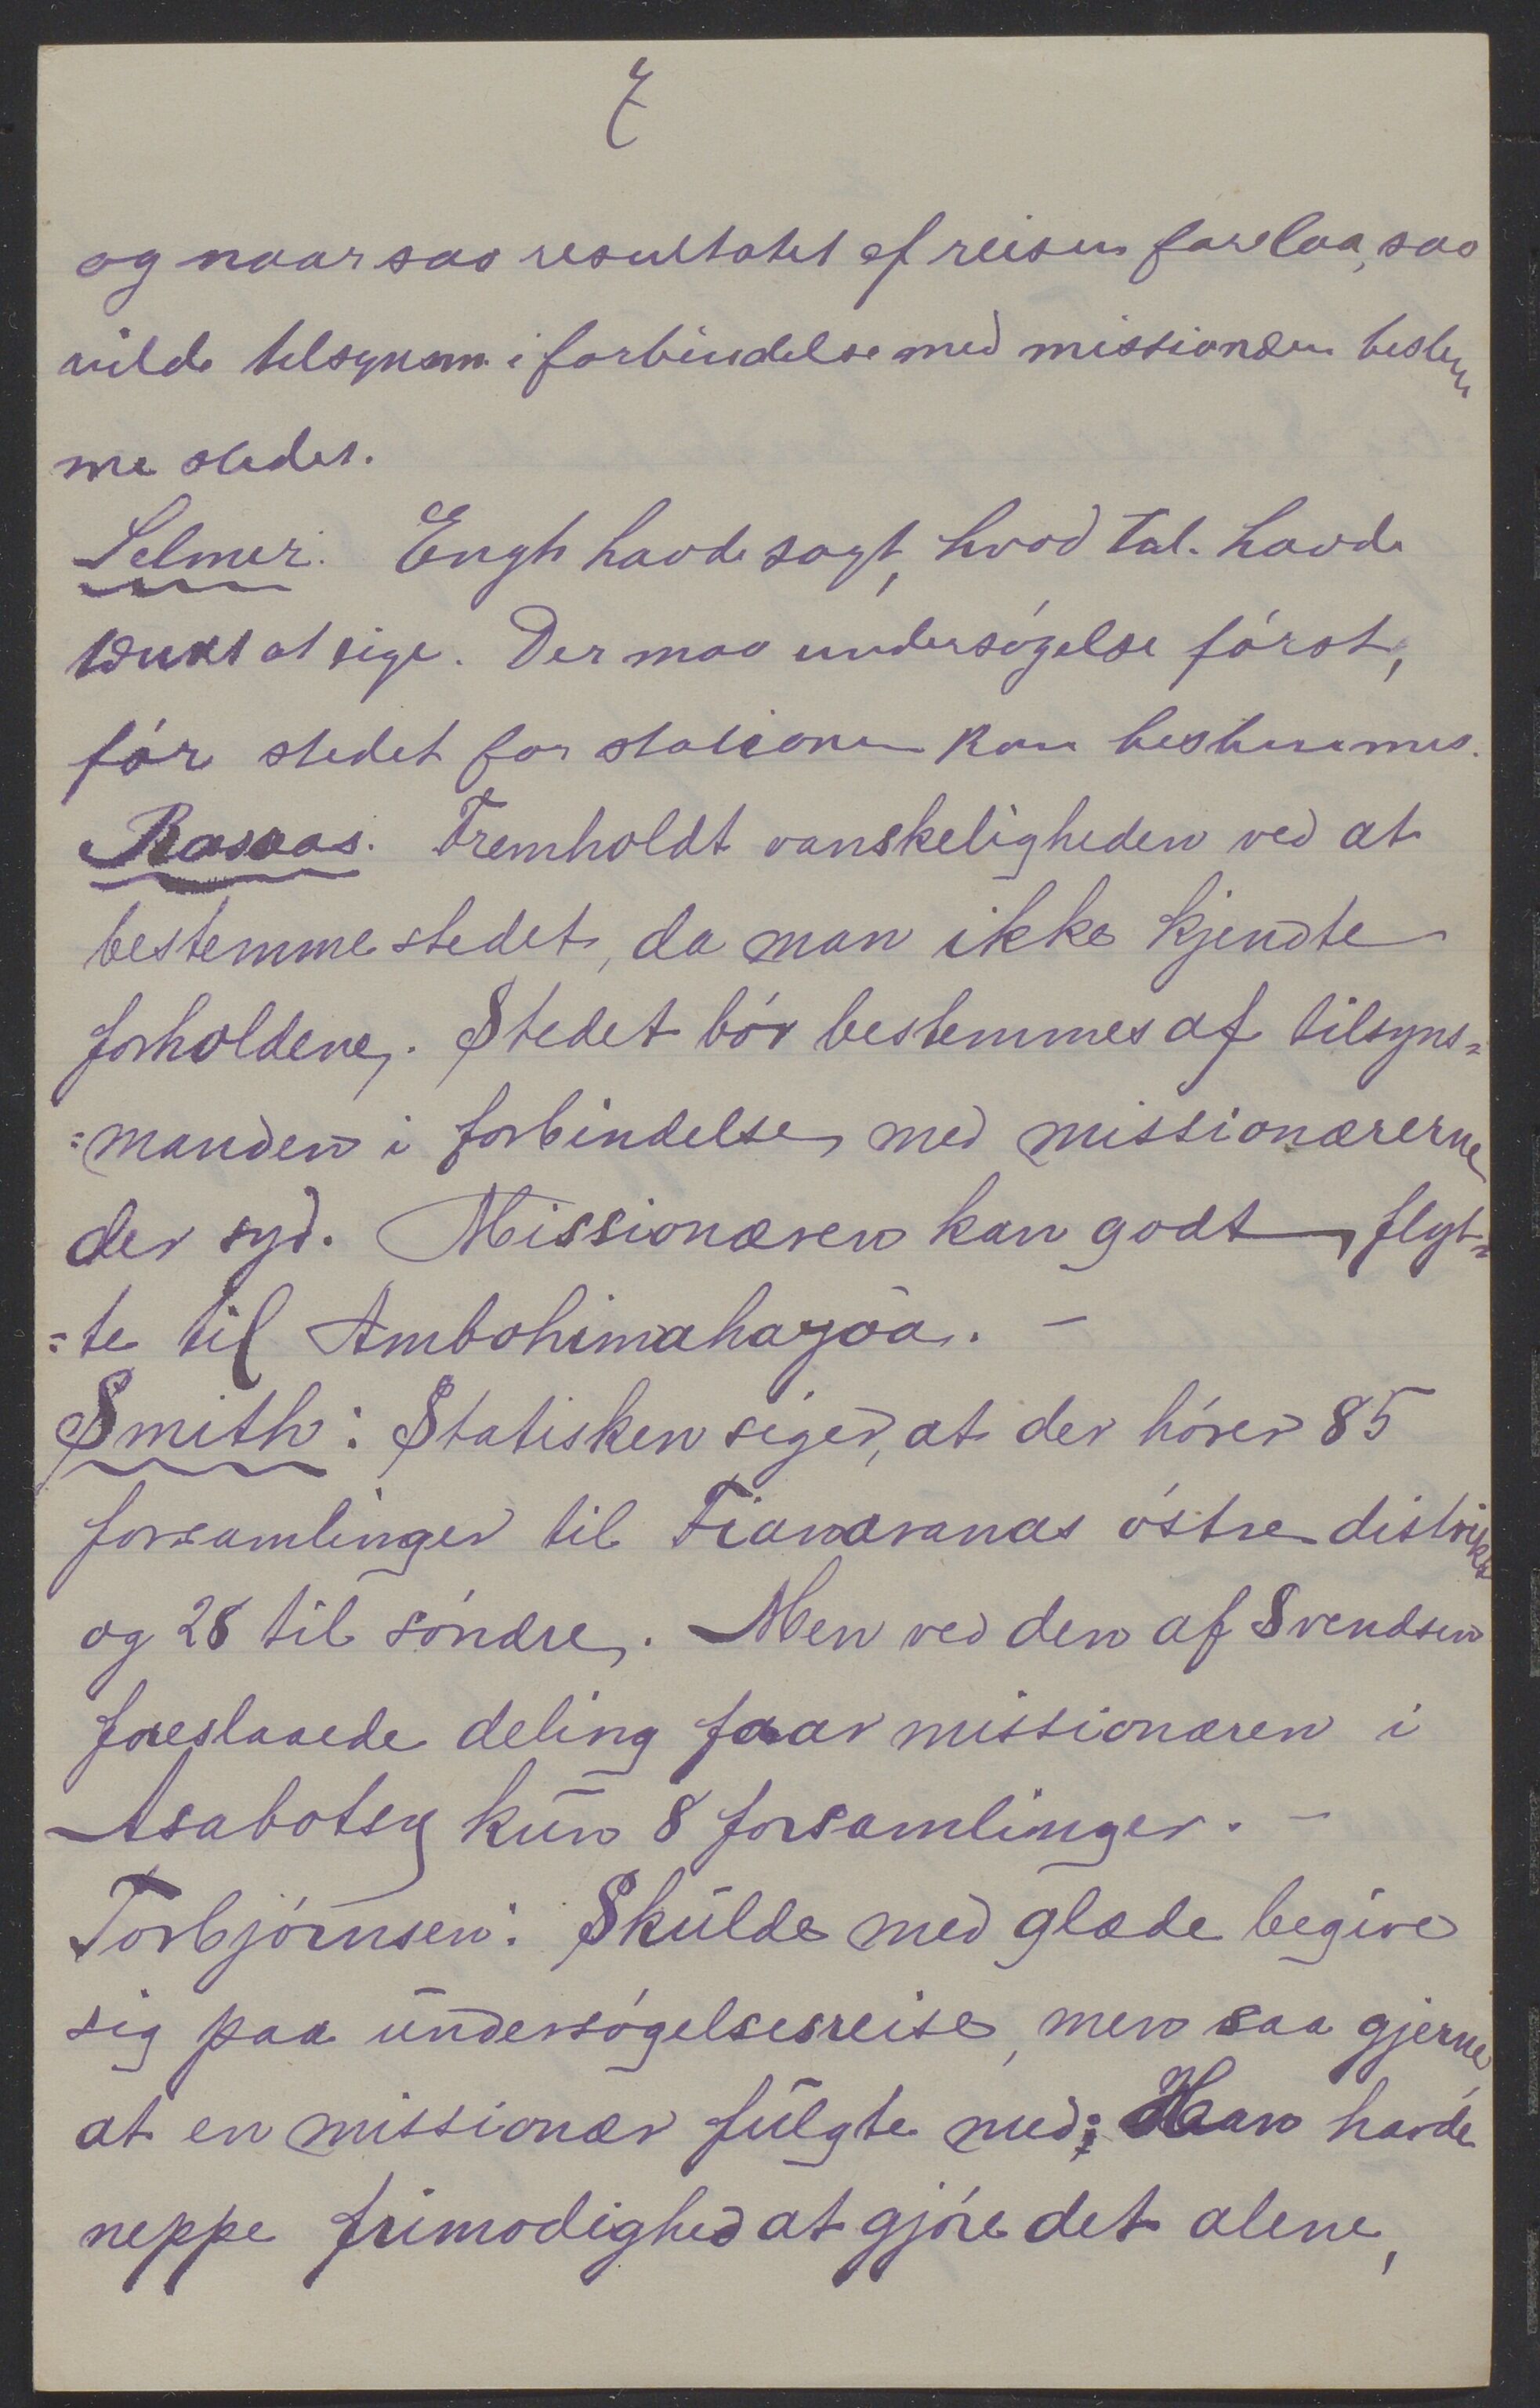 7
og naar saa resultatet af reisen forelaa, saa
vilde tilsynsm. i forbindelse med missionæren bestem
me stedet.
Selmer. Engh havde sagt, hvad Tal. havde
tænkt at sige. Der maa undersøgelse først,
før stedet for stationen kan bestemmes.
Rosaas. Fremholdt vanskeligheden ved at
bestemme stedet, da man ikke kjendte
forholdene. Stedet bør bestemmes af tilsyns=
=manden i forbindelse med missionærerne
der syd. Missionæren kan godt flyt=
=te til Ambohimahazoa. –
Smith: Statisken siger, at der hører 85
forsamlinger til Fianaranas østre distrikt
og 28 til søndre. Men ved den af Svendsen
foreslaaede deling faar missionæren i
Asabotsy kun 8 forsamlinger. –
Torbjørnsen: Skulde med glæde begive
sig paa undersøgelsesreise, men saa gjerne,
at en missionær fulgte med; Han havde
neppe frimodighed at gjøre det alene,